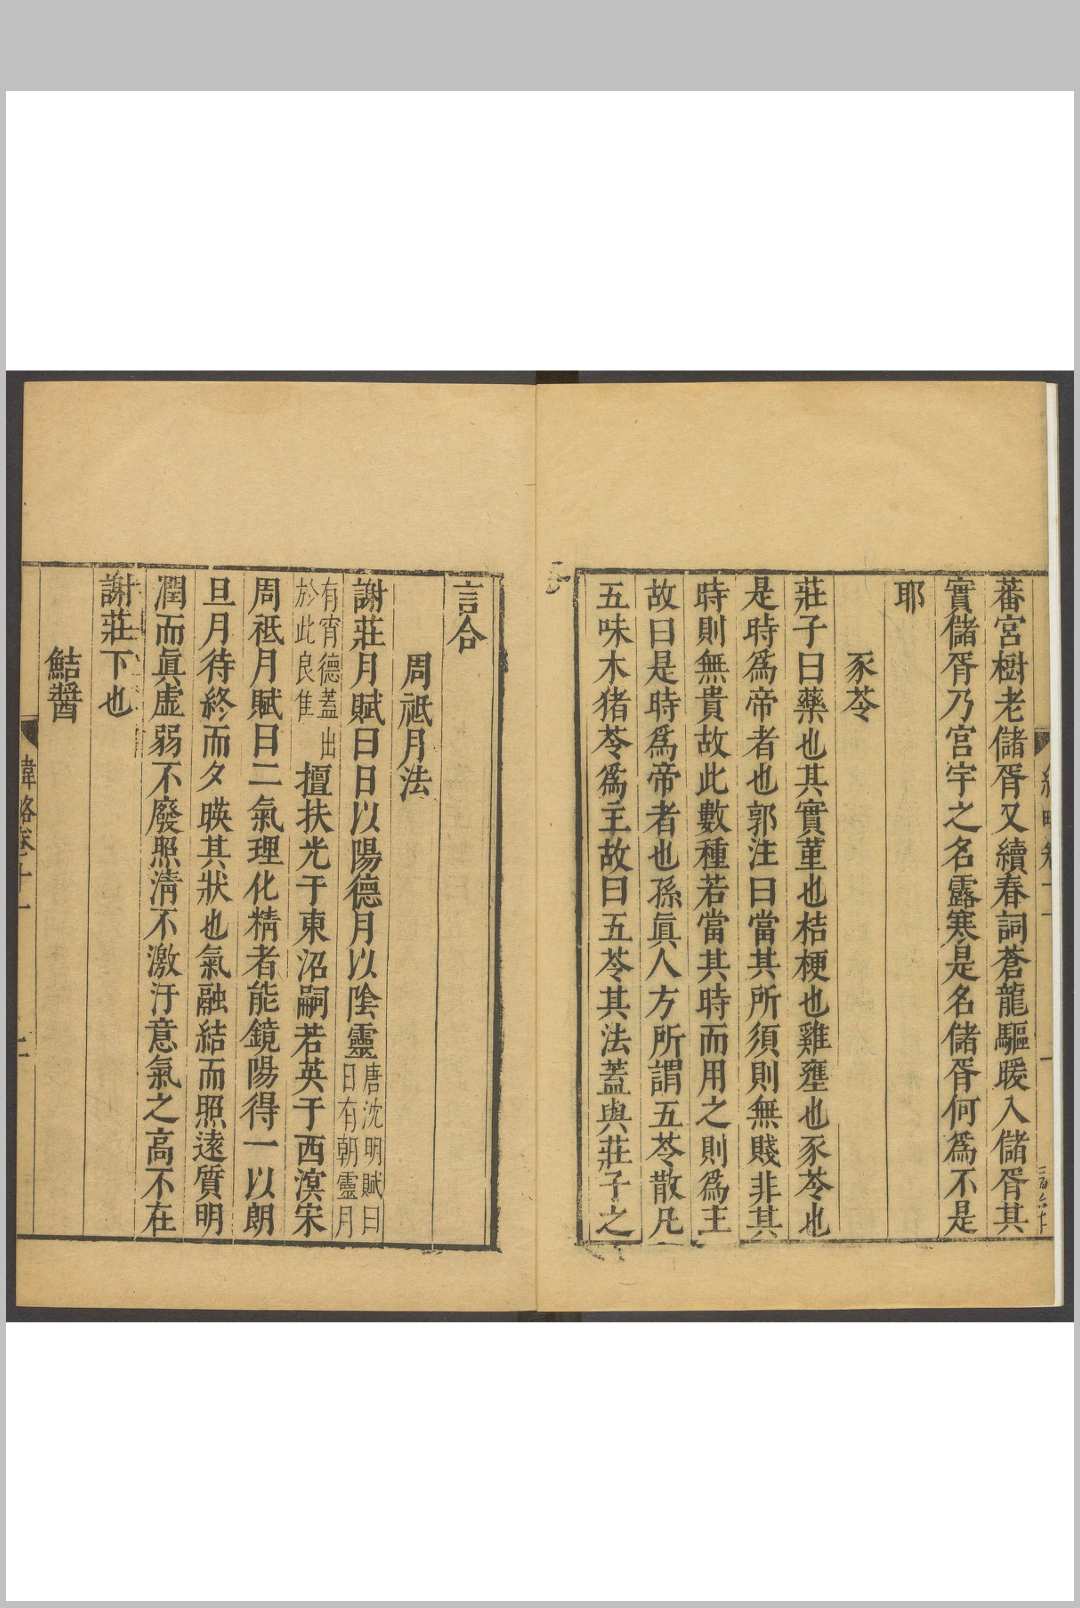 蕃宮樹老儲胥又續春詞蒼龍驅暖入儲胥其
實儲胥乃宮宇之名露寒是名儲胥何爲不是
耶
豕苓
莊子曰藥也其實堇也桔梗也雞壅也豕苓也
是時爲帝者也郭注曰當其所須則無賤非其
時則無貴故此數種若當其時而用之則爲主
故曰是時爲帝者也孫眞人方所謂五苓散凡
五味木猪苓爲主故曰五苓其法蓋與莊子之
言合
周祗月法
謝莊月賦曰日以陽德月以陰靈唐沈明賦日日有朝靈月
有宵德蓋出於此良隹擅扶光于東沼嗣若英于西溟宋
周祗月賦曰二氣理化精者能鏡陽得一以朗
旦月待終而夕暎其狀也氣融結而照遠質明
潤而眞虛弱不廢照淸不激汙意氣之高不在
謝莊下也
鮚醬
緯略卷十一